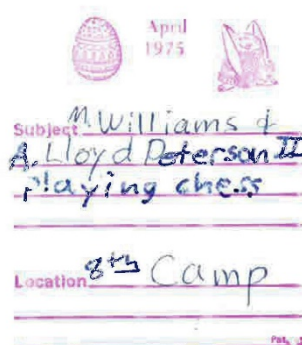 April
1975
Subject M. Williams &
A. Lloyd Peterson II
playing chess
Location 8th Camp
Pat.